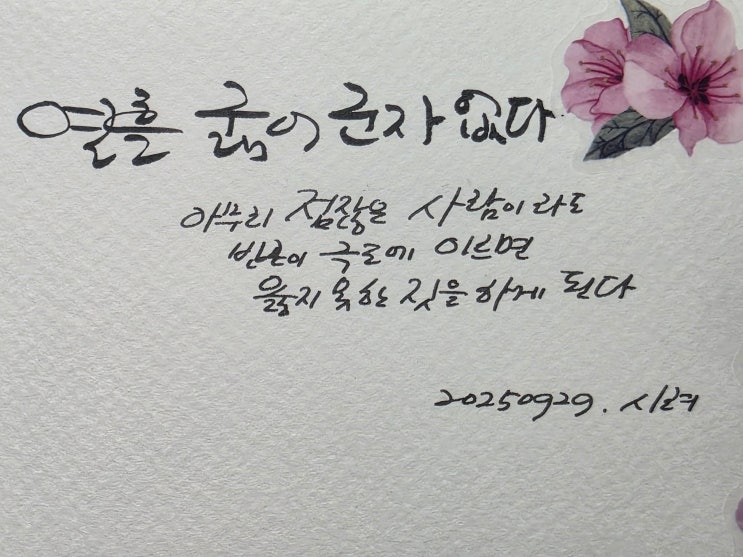 열흘 굶어 군자 없다
아무리 점잖은 사람이라도
빈곤이 극도에 이르면
옳지 못한 짓을 하게 된다
20250929.